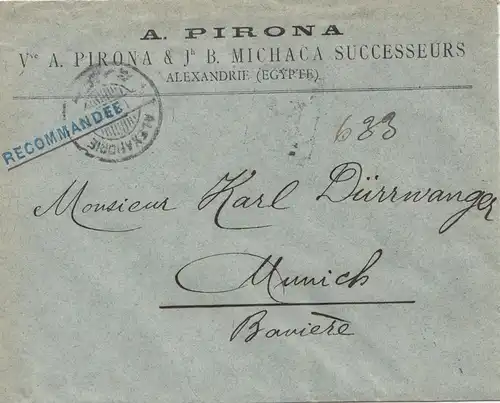 A. PIRONA
Vve A. PIRONA & Jh B. MICHACA SUCCESSEURS
ALEXANDRIE (EGYPTE)
ALEXANDRIE
RECOMMANDÉE
633
Monsieur Karl Dürrwanger
Munich
Bavière